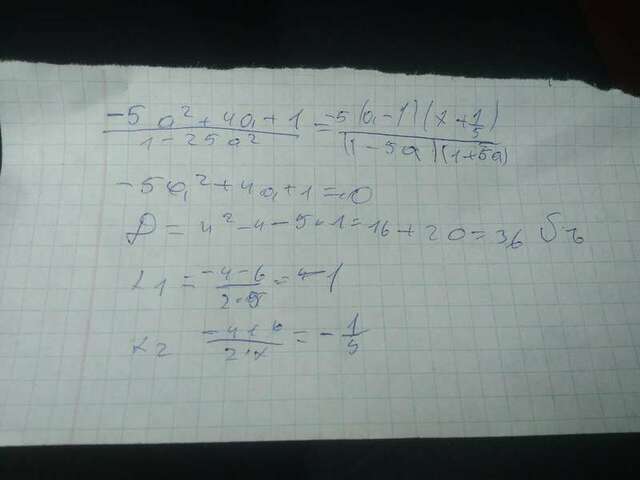 -5a²+4a+1/1-25a² = -5(a-1)(x+1/5)/(1-5a)(1+5a)
-5a²+4a+1=0
D=4²-4-5·1=16+20=36
x1=-4-6/2·5=1
x2 -4+6/2· =-1/5